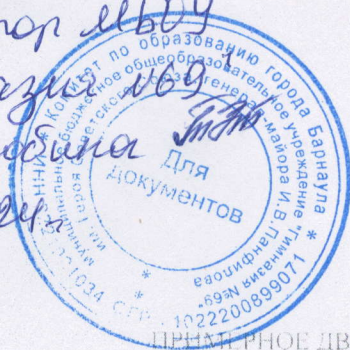 ор МБОУ
азия №69"
бина
24г.
Комитет по образованию города Барнаула *
муниципальное бюджетное общеобразовательное учреждение "Гимназия №69"
им. Героя Советского Союза генерал-майора И.В.Панфилова
ОГРН 1022200899071
Для
документов
ПРИМЕРНОЕ ДВ